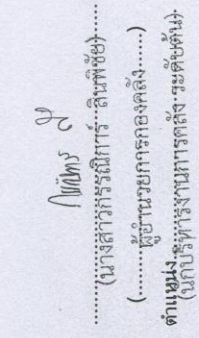 (นางสาวกรรณิการ์ สินพิชัย)
(ผู้อำนวยการกองคลัง)
ตำแหน่ง
(นักบริหารงานการคลัง ระดับต้น)